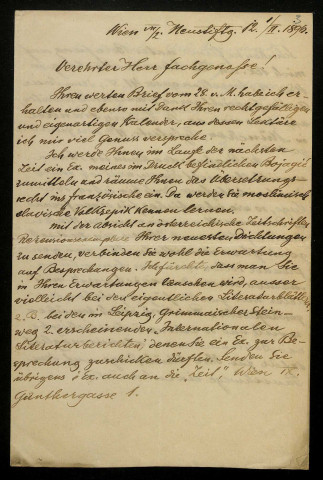 Wien VII/2. Neustiftg. 12. 1/II. 1896.
Verehrter Herr Fachgenosse!
Ihren werten Brief vom 28. v. M. habe ich er-
halten und ebenso mit Dank Ihren
und eigenartigen Kalender, aus dessen Lektüre
ich mir viel Genuss verspreche.
Ich werde Ihnen im Laufe der nächsten
Zeit ein Ex. meines im Druck befindlichen
zumitteln und räume Ihnen das Übersetzungs-
recht ins französische ein. Da werden Sie moslimisch
slavische Volksepik kennen lernen.
Mit der Absicht an österreichische Zeitschriften
Rezensionsexemplare Ihrer neuesten Dichtungen
zu senden, verbinden Sie wohl die Erwartung
auf Besprechungen. Ich fürchte, dass man Sie
in Ihren Erwartungen täuschen wird, ausser
vielleicht bei den eigentlichen Literaturblättern
z. B. bei den im Leipzig, Grimmaischer Stein-
weg 2. erscheinenden Internationalen
Literaturberichten, denen Sie ein Ex. zur Be-
sprechung zuschicken dürften. Senden Sie
übrigens 1 Ex. auch an die „Zeit", Wien IX.
Günthergasse 1.